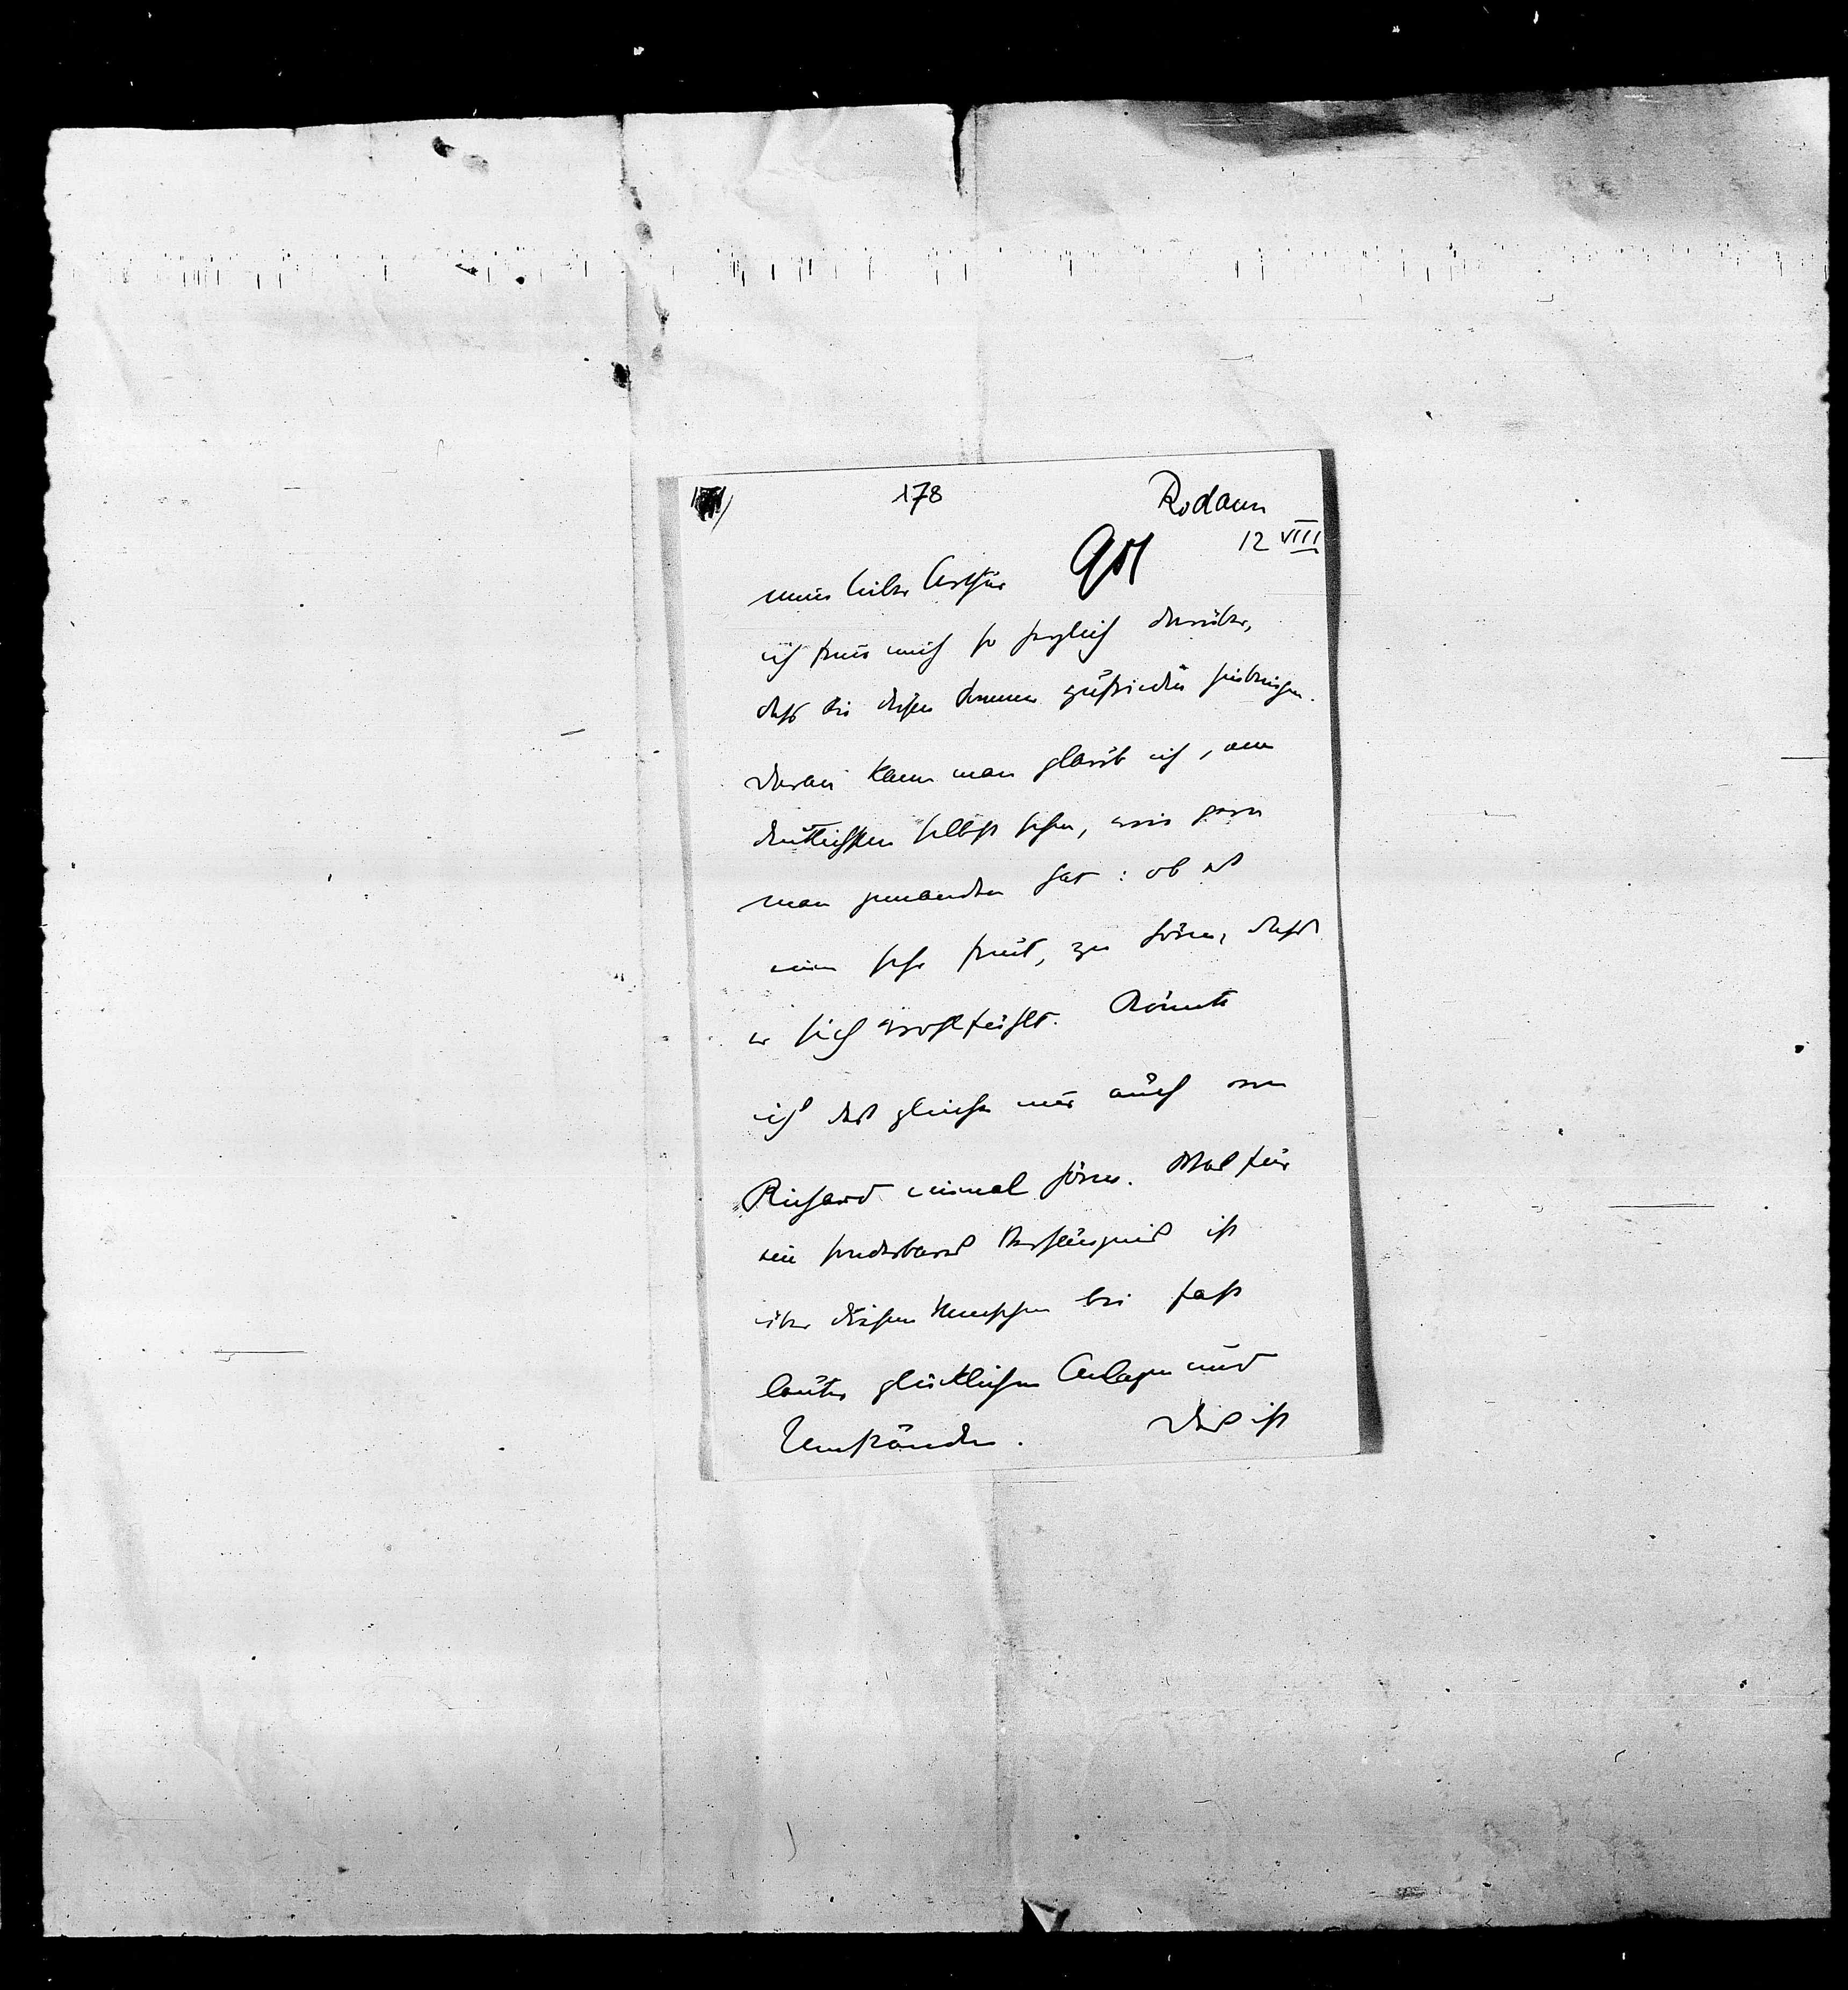 178
Rodaun
12 VIII
mein lieber Arthur
ich freue mich so herzlich darüber,
dass Sie diesen Sommer zufrieden hinbringen.
Daran kann man glaub ich, am
deutlichsten selbst sehen, wie gern
man jemanden hat: ob es
einen sehr freut, zu hören, dass
er sich wohlfühlt. Könnte
ich das gleiche nur auch von
Richard einmal hören. Was für
ein sonderbares Verhängnis ist
über diesen Menschen bei fast
lauter glücklichen Anlagen und
Umständen. Das ist